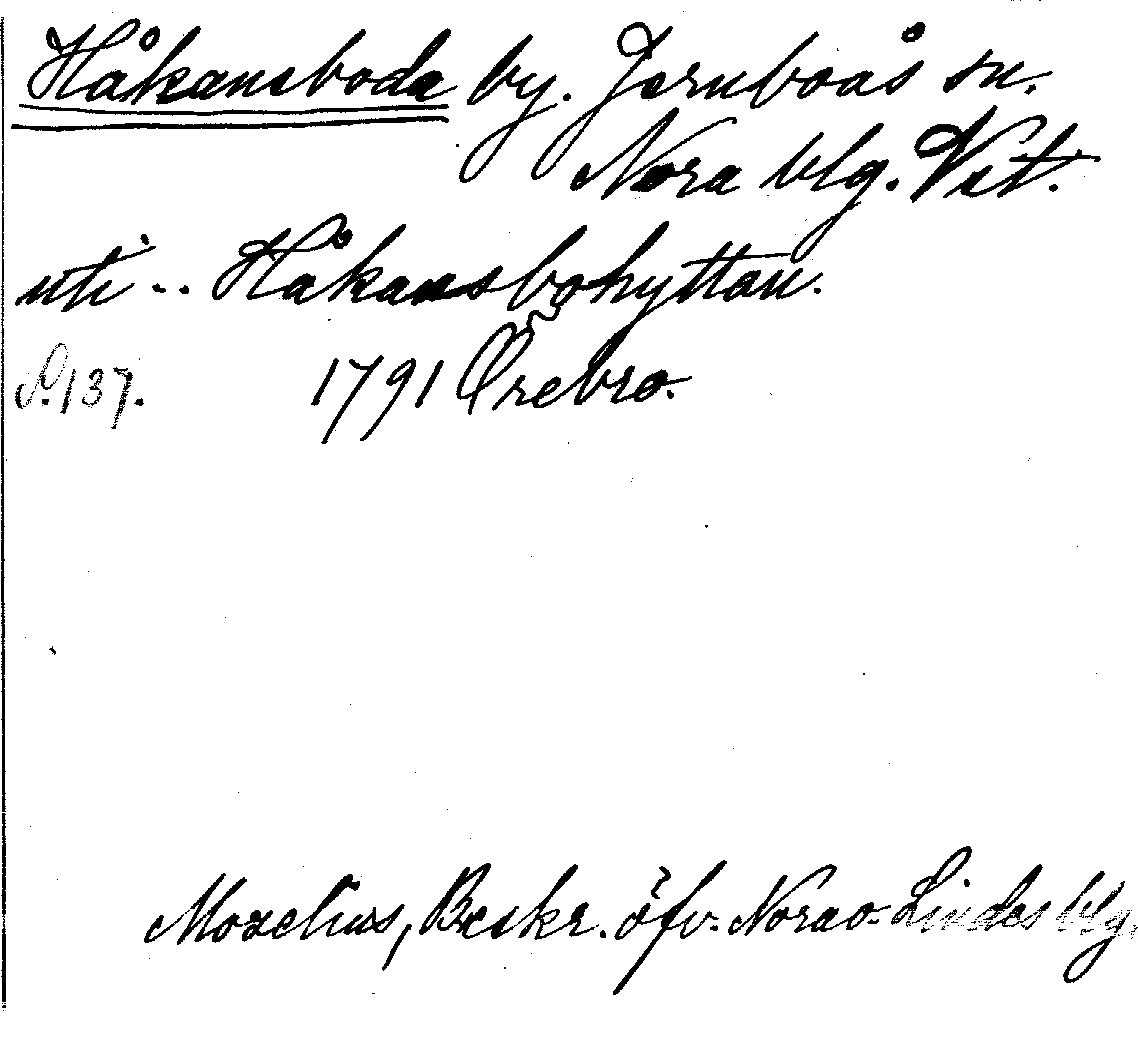 Håkansboda by. Jernboås sn.
Nora blg. Vst.
uti -- Håkansbohyttan.
S. 137. 1791 Örebro.
Moxelius, Beskr. öfv. Nora o. Lindes blg.